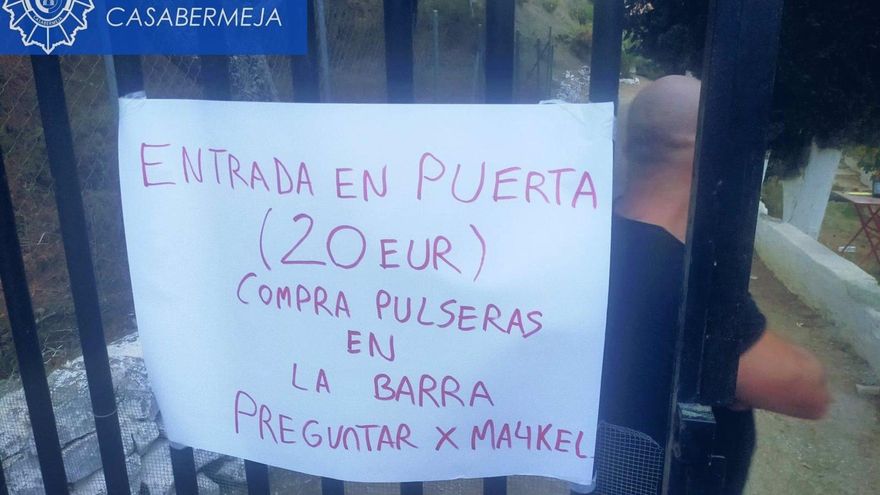 CASABERMEJA
ENTRADA EN PUERTA
(20 EUR)
COMPRA PULSERAS
EN
LA BARRA
PREGUNTAR X MA4KEL